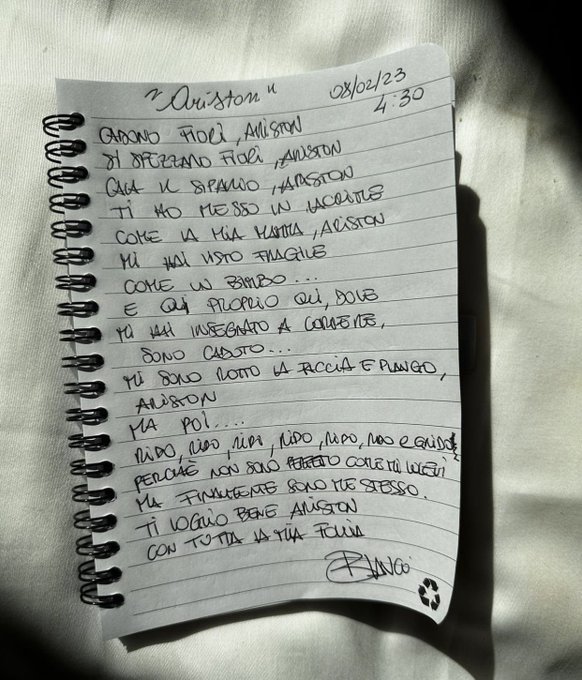 "Ariston"
08/02/23
4:30
CADONO FIORI, ARISTON
SI SPEZZANO FIORI, ARISTON
CALA IL SIPARIO, ARISTON
TI HO MESSO IN LACRIME
COME LA MIA MAMMA, ARISTON
MI HAI VISTO FRAGILE
COME UN BIMBO...
E QUI PROPRIO QUI, DOVE
MI HAI INSEGNATO A CORRERE,
SONO CADUTO...
MI SONO ROTTO LA FACCIA E PIANGO,
ARISTON
MA POI....
RIDO, RIDO, RIDO, RIDO, RIDO, RIDO E GRIDO
PERCHÈ NON SONO COME MI VOLEVI
MA FINALMENTE SONO ME STESSO.
TI VOGLIO BENE ARISTON
CON TUTTA LA MIA FOLLIA
BLANCO